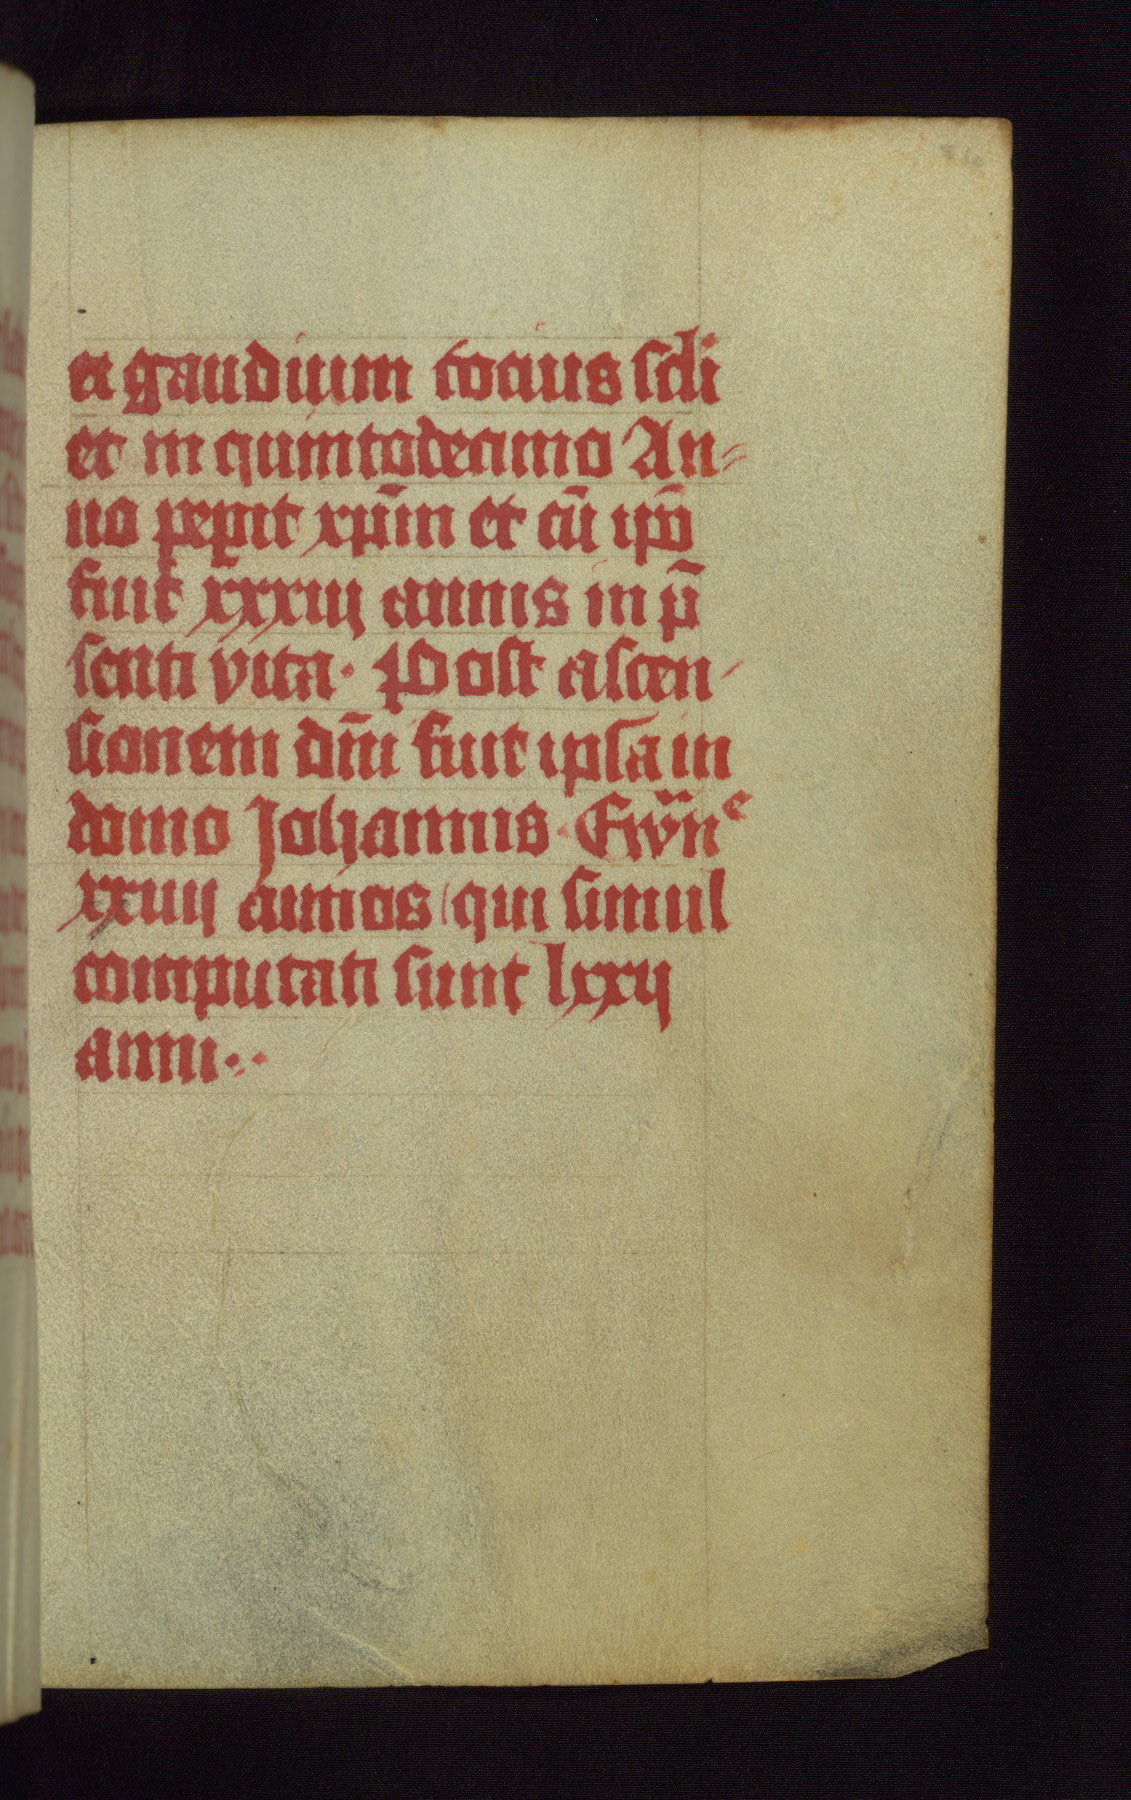 et gaudium tocius scli
et in quintodecimo An-
no peperit xp̄m et cū ip̄o
fuit xxxiij annis in p̄
senti vita. Post ascen-
sionem dn̄i fuit ipsa in
domo Johannis Ew̄nᵉ
xxiiij annos qui simul
computati sunt lxxij
anni..